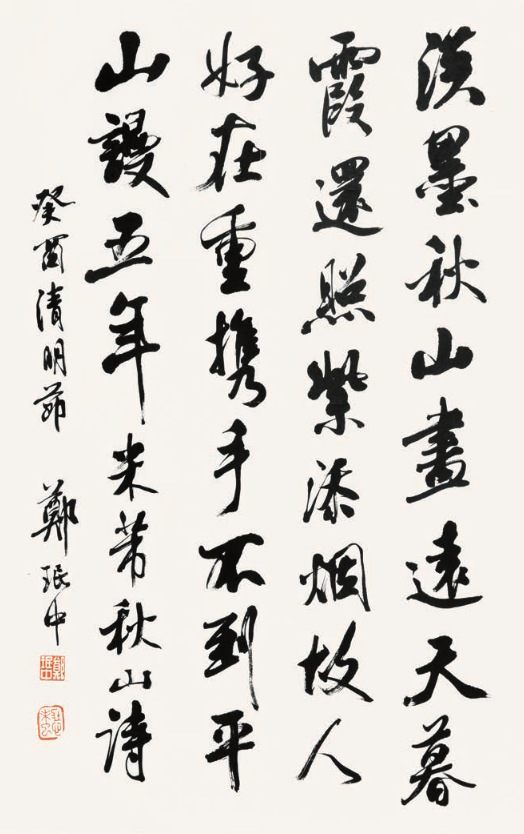 淡墨秋山畫遠天暮
霞還照紫添烟故人
好在重携手不到平
山謾五年米芾秋山詩
癸酉清明節 鄭珉中